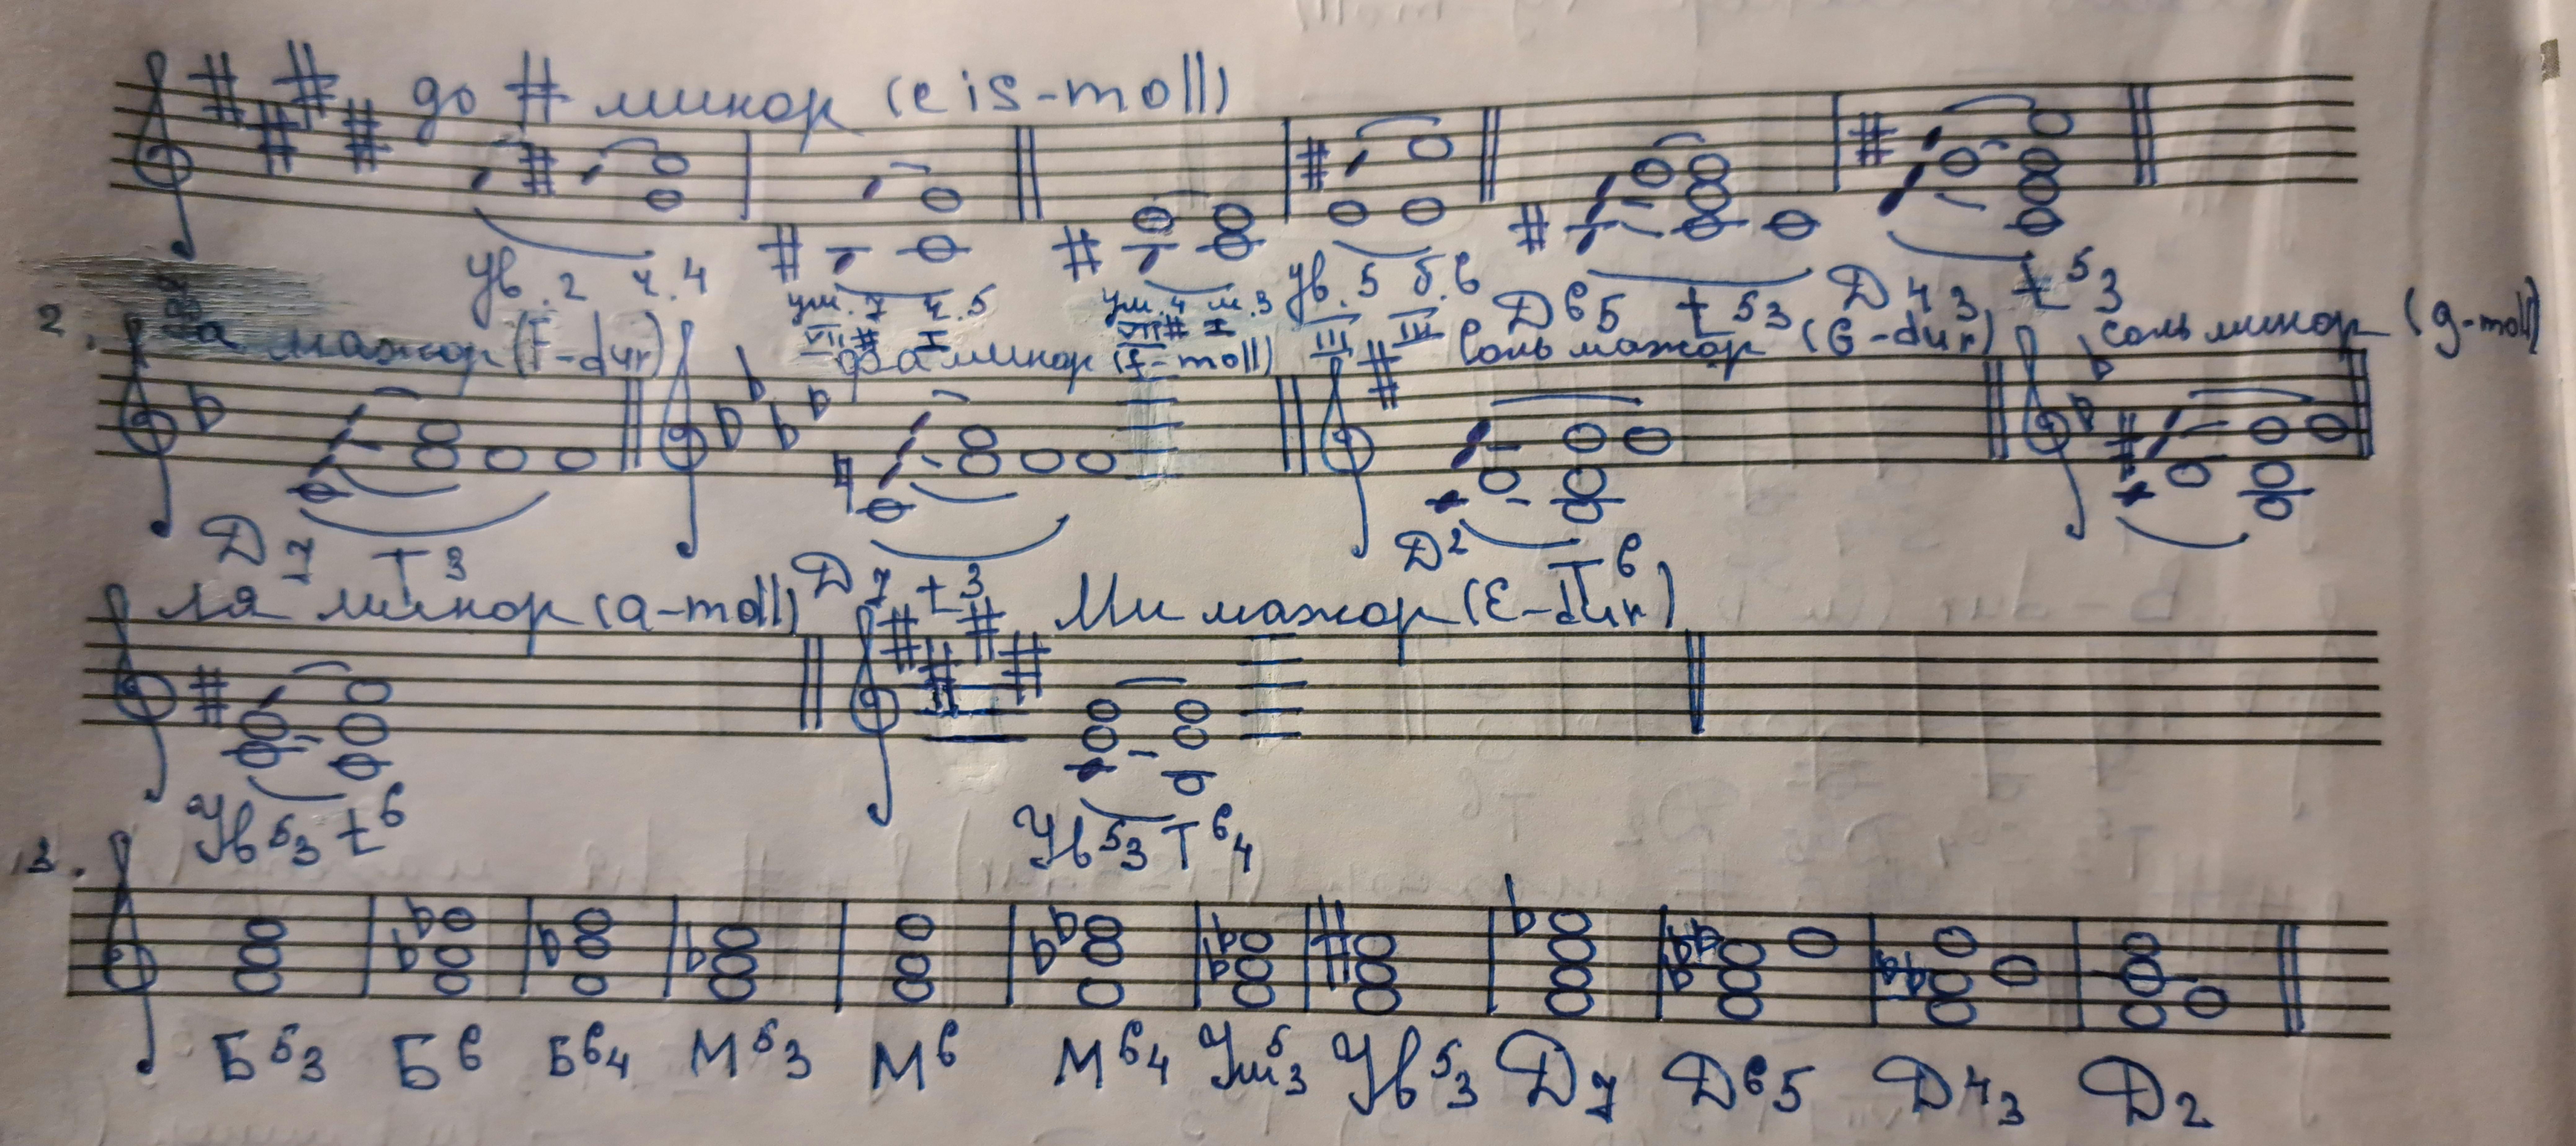 до # минор (cis-moll)
ув.2 ч.4 ум.7 ч.5 ум.4 м.3 ув.5 б.6 Д65 t53 Д43 t53
VII# I VII# I III III
2. Фа мажор (F-dur) фа минор (f-moll) Соль мажор (G-dur) соль минор (g-moll)
Д7 Т3 Д7 t3 Д2 Т6
ля минор (a-moll) Ми мажор (E-dur)
Ув53 t6 Ув53 Т64
3.
Б53 Б6 Б64 М53 М6 М64 Ум53 Ув53 Д7 Д65 Д43 Д2